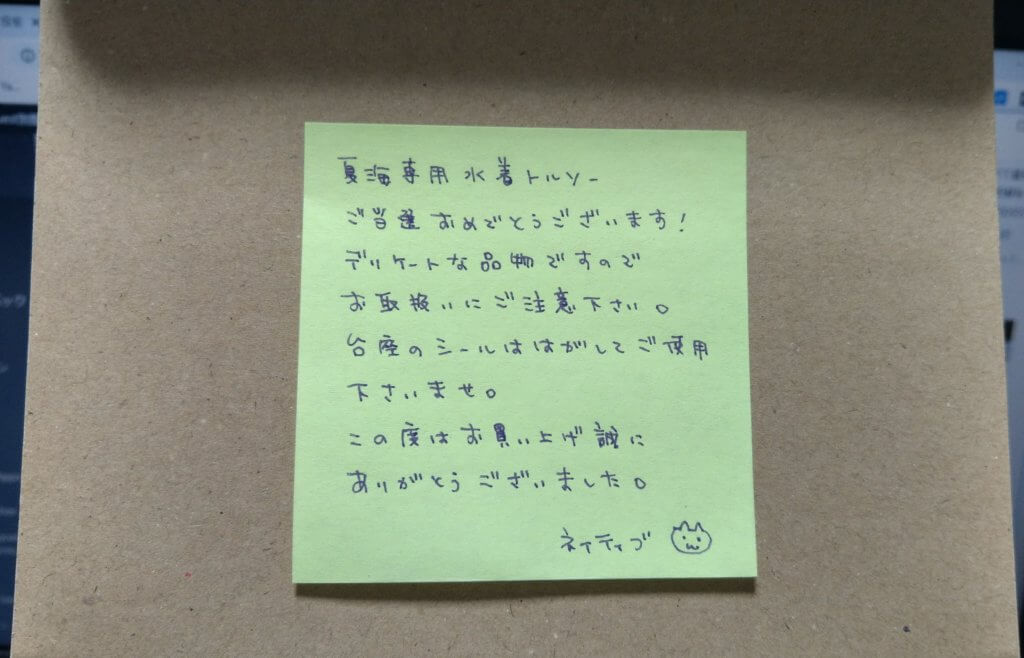 夏海専用水着トルソー
ご当選おめでとうございます!
デリケートな品物ですので
お取扱いにご注意下さい。
台座のシールははがしてご使用
下さいませ。
この度はお買い上げ誠に
ありがとうございました。
ネイティブ